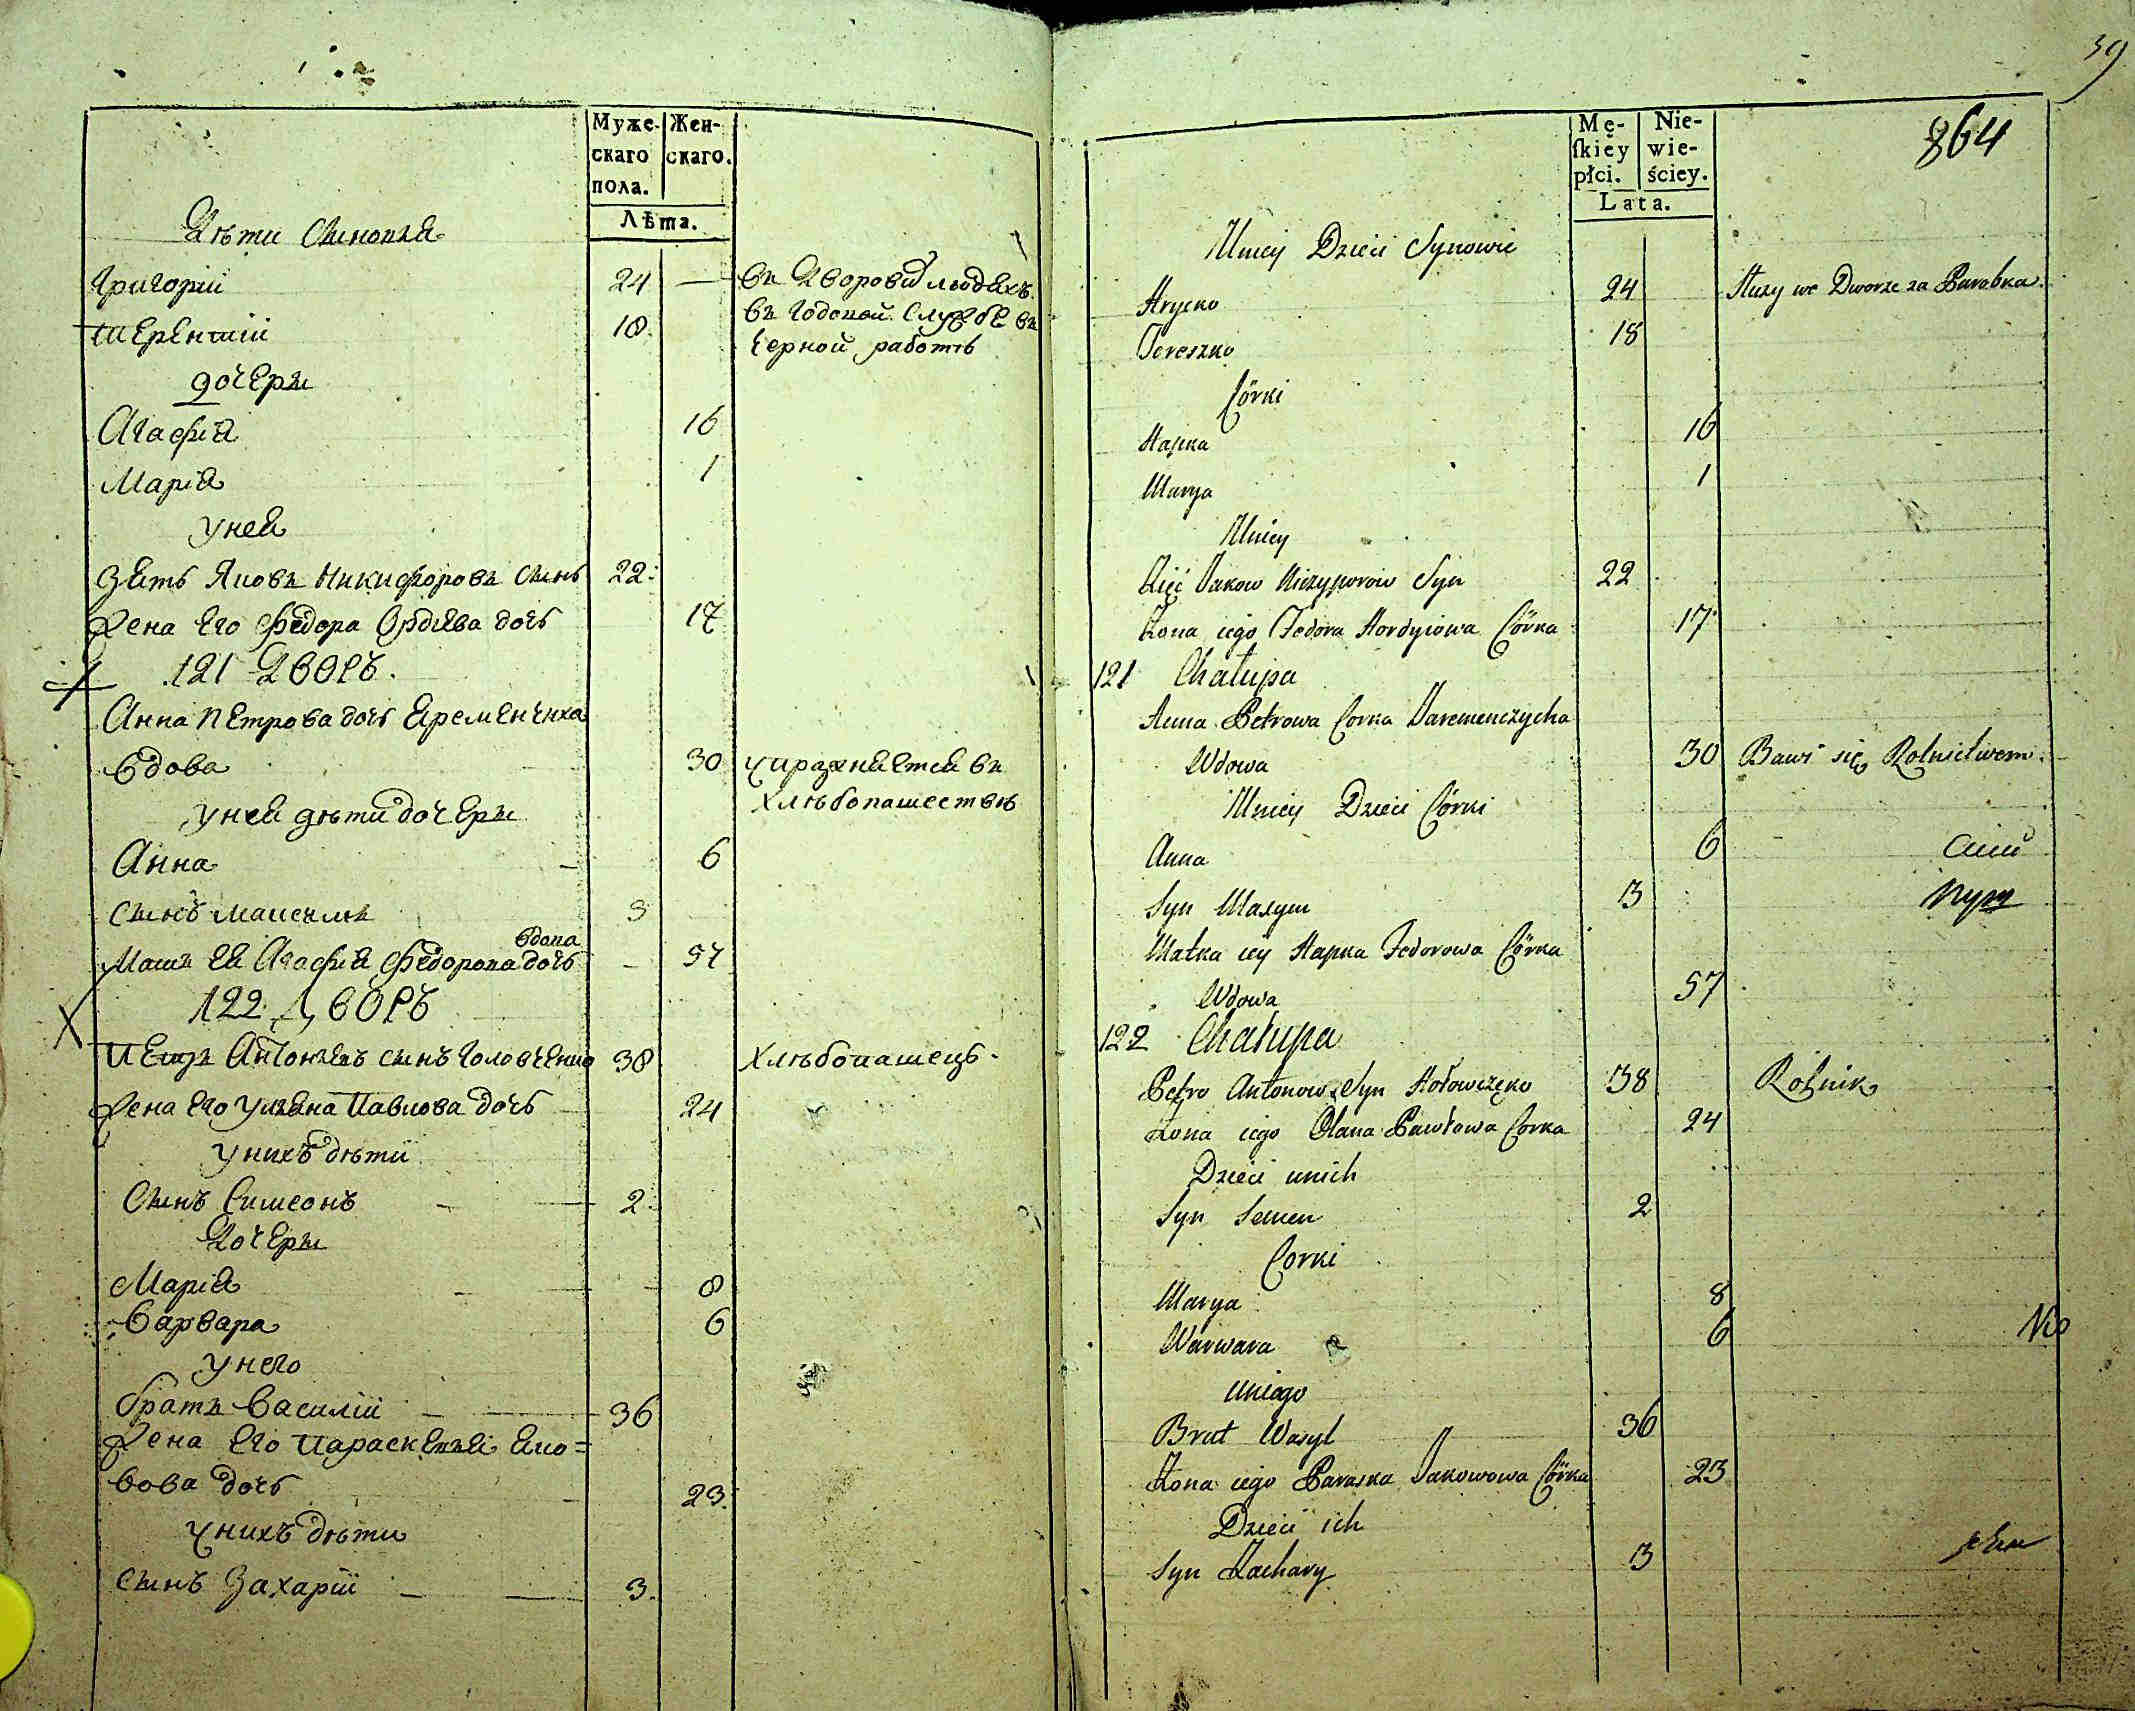 Муже-
скаго
пола.
Жен-
скаго.
Лѣта.
Дѣти Сыновья
Григорий 24 — въ Дворовых людяхъ.
Терентий 18. въ годовой Службе въ
черной работѣ
дочеры
Агафия 16
Мария 1
у нея
Зять Яковъ Никифоровъ сынъ 22.
Жена Его Федора Ордѣева дочь 17
121 Дворъ.
Анна Петрова дочь Яременчиха
Вдова 30 упражняется въ
хлѣбопашествѣ
у нея дѣти дочеры
Анна 6
сынъ Максимъ 3
вдова
Мать Ея Агафия Федорова дочь 57
122 Дворъ
Петръ Антоновъ сынъ Головченко 38 хлѣбопашецъ.
Жена Его Ульяна Павлова дочь 24
у нихъ дѣти
Сынъ Симеонъ 2
Дочеры
Мария 8
Варвара 6
у него
братъ Василий 36
Жена Его Параскевия Яко=
вова дочь 23.
у нихъ дѣти
сынъ Захарий 3.
39
864
Mę-
ſkiey
płci.
Nie-
wie-
ściey.
Lata.
U niey Dzieci Synowie
Hrycko 24 Służy we Dworze za Parobka.
Tereszko 18
Córki
Hapka 16
Marya 1
U niey
Zięć Jakow Niczyporow Syn 22
Żona iego Fedora Hordyiowa Córka 17
121 Chałupa
Anna Petrowa Corka Jaremenczycha
Wdowa 30 Bawi się Rolnictwem.
U niey Dzieci Córki
Anna 6
Syn Maxym 3
Matka iey Hapka Fedorowa Córka
Wdowa 57
122 Chałupa
Petro Antonow Syn Hołowczęko 38 Rolnik
Żona iego Olana Pawłowa Corka 24
Dzieci u nich
Syn Semen 2
Corki
Marya 8
Warwara 6
u niego
Brat Wasyl 36
Żona iego Paraska Jakowowa Córka 23
Dzieci ich
Syn Zachary 3